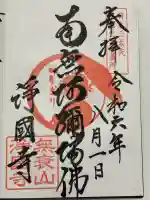 奉拝
令和六年
八月一日
南無阿彌陀佛
無衰山
淨國寺